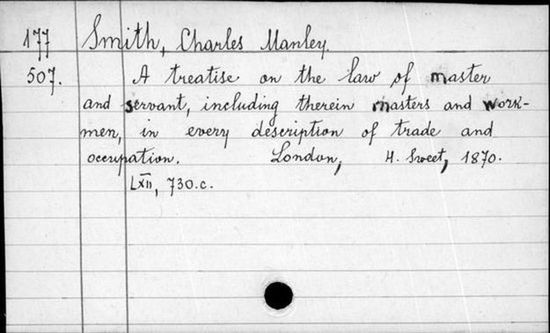 177 Smith, Charles Manley.
507. A treatise on the law of master
and servant, including therein masters and work-
men, in every description of trade and
occupation. London, H. Sweet, 1870.
LXII, 730.c.